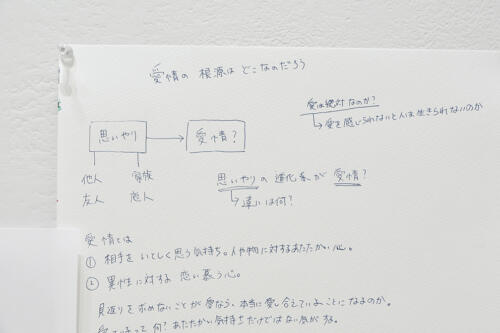 愛情の 根源は どこなのだろう
愛は絶対なのか?
↳ 愛を感じられないと人は生きられないのか
思いやり → 愛情?
他人 家族
友人 恋人
思いやりの進化系が 愛情?
↳ 違いは何?
愛情とは
① 相手を いとしく思う気持ち。人や物に対するあたたかい心。
② 異性に対する 恋い慕う心。
見返りを求めないことが愛なら、本当に愛し合えていることになるのか。
って 何? あたたかい気持ちだけではない気がする。